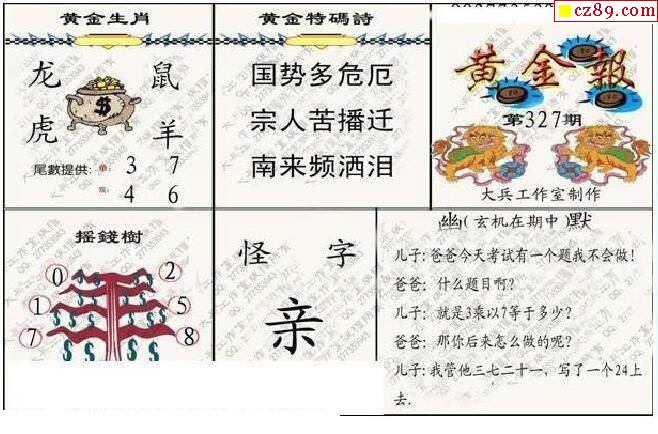 cz89.com
黄金生肖
龙 鼠
虎 羊
尾數提供: 單: 3 7
双: 4 6
黄金特碼詩
国势多危厄
宗人苦播迁
南来频洒泪
黄金報
第327期
大兵工作室制作
摇錢樹
0 2
1 5
7 8
怪 字
亲
幽(玄机在期中)默
儿子:爸爸今天考试有一个题我不会做!
爸爸: 什么题目啊?
儿子: 就是3乘以7等于多少?
爸爸: 那你后来怎么做的呢?
儿子:我管他三七二十一,写了一个24上
去.